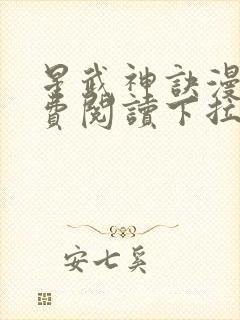 星武神訣漫
費閱讀下拉
安七奚